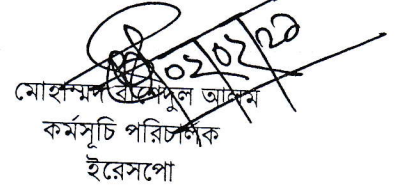 ০২ ০২ ২০
মোহাম্মদ রাশেদুল আলম
কর্মসূচি পরিচালক
ইরেসপো